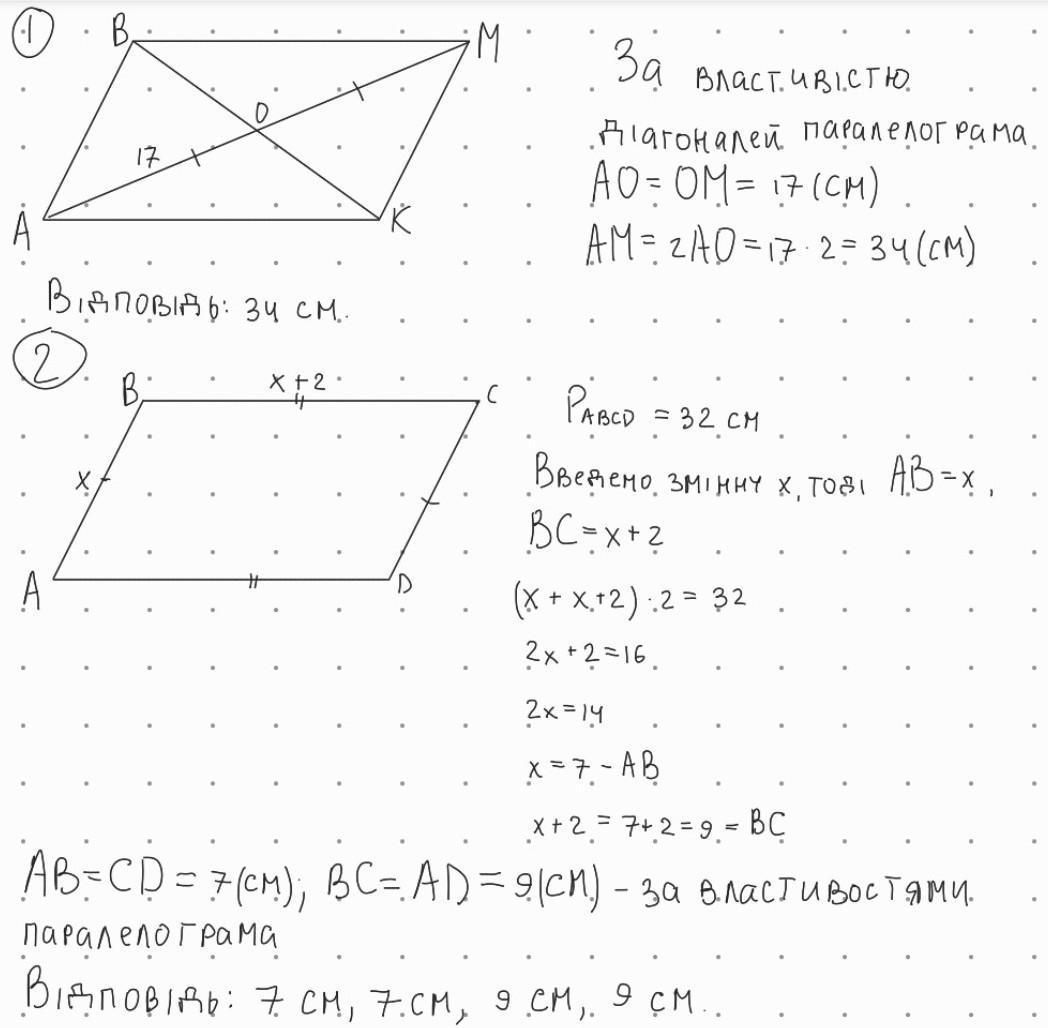 1
B
M
O
17
A
K
За властивістю
діагоналей паралелограма
AO = OM = 17 (см)
AM = 2AO = 17 · 2 = 34 (см)
Відповідь: 34 см.
2
B
x + 2
C
x
A
D
P ABCD = 32 см
Введемо змінну x, тоді AB = x,
BC = x + 2
(x + x + 2) · 2 = 32
2x + 2 = 16
2x = 14
x = 7 - AB
x + 2 = 7 + 2 = 9 = BC
AB = CD = 7 (см); BC = AD = 9 (см) - за властивостями
паралелограма
Відповідь: 7 см, 7 см, 9 см, 9 см.